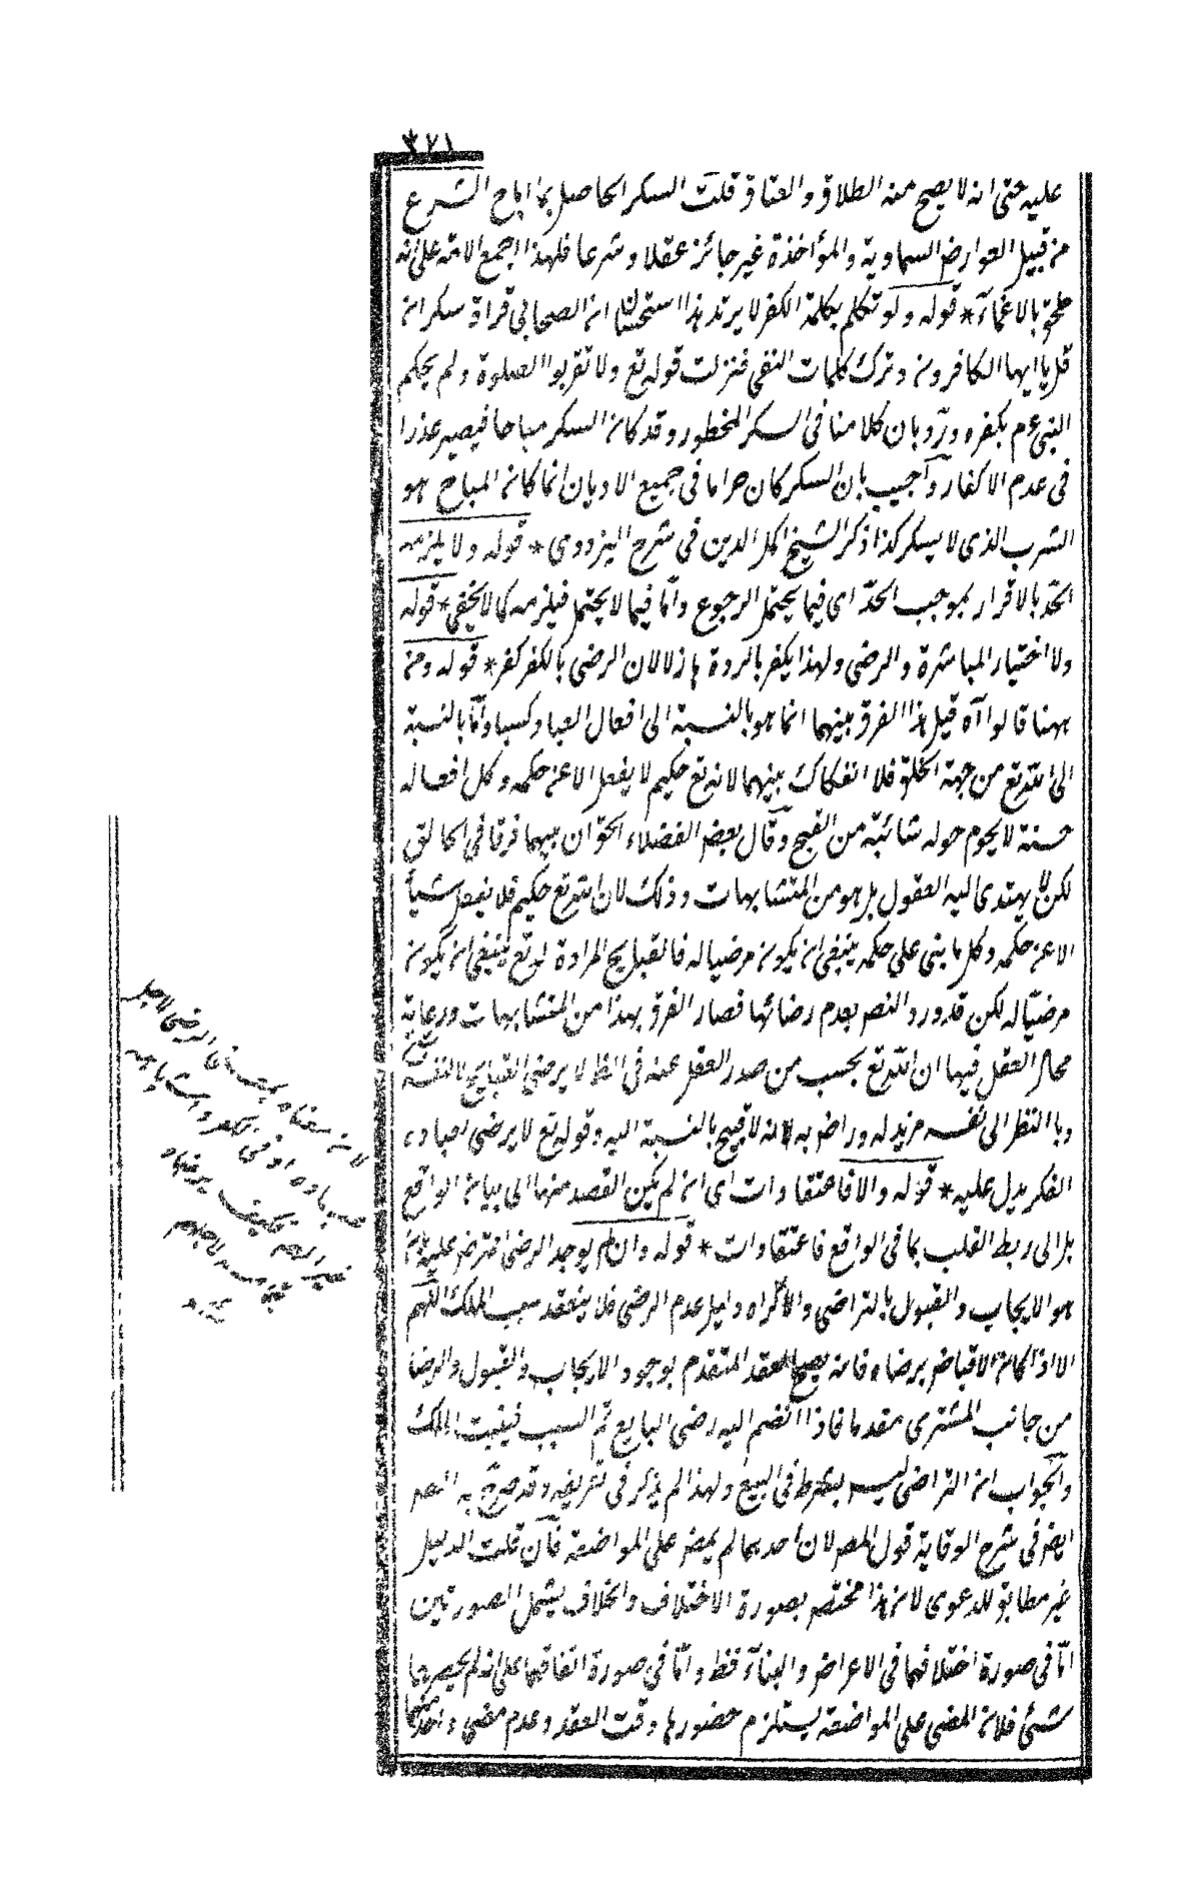 ٣٢١
عليه حتى انه لا يصح منه الطلاق والعتاق قلت السكر الحاصل بما اباح الشرع
من قبيل العوارض السماوية والمؤاخذة غير جائز عقلا وشرعا فلهذا اجمع الائمة على انه
ملحق بالاغماء * قوله ولو تكلم بكلمة الكفر لا يرتد هذا استحسانا ان الصحابي قرأ سكران
قل يا ايها الكافرون وترك كلمات النفى فنزلت قوله تع ولا تقربوا الصلوة ولم يحكم
النبى عم بكفره ورد بان كلامنا فى السكر المحظور وقد كان السكر مباحا فيصير عذرا
فى عدم الاكفار واجيب بان السكر كان حراما فى جميع الاديان انما كان المباح هو
الشرب الذى لا يسكر كذا ذكر الشيخ اكمل الدين فى شرح البزدوى * قوله ولا يلزمه
الحد بالاقرار بموجب الحد اى فيما يحتمل الرجوع واما فيما لا يحتمل فيلزمه كما لا يخفى * قوله
ولا اختيار المباشرة والرضى ولهذا يكفر بالردة هازلا لان الرضى بالكفر كفر * قوله ومن
ههنا قالوا آه قيل هذا الفرق بينهما انما هو بالنسبة الى افعال العباد كسبا واما بالنسبة
الى الله تع من جهة الخلق فلا انفكاك بينهما لانه تع حكيم لا يفعل الا عن حكمه وكل افعاله
حسنة لا يحوم حوله شائبة من القبح وقال بعض الفضلاء الحق ان بينهما فرقا فى الخالق
لكن لا يهتدى اليه العقول بل هو من المتشابهات وذلك لان الله تع حكيم فلا يفعل شيأ
الا عن حكمه وكل ما بنى على حكمه ينبغى ان يكون مرضيا له فالقبايح المرادة له تع ينبغى ان يكون
مرضيا له لكن قد ورد النص بعدم رضائها فصار الفرق بهذا من المتشابهات ورعاية
محال العقل فيها ان الله تع بحسب من صدر العقل عنه فى الظ لا يرضى القبايح
وبالنظر الى نفسه مريد له وراض به لانه لا قبيح بالنسبة اليه وقوله تع لا يرضى لعباده
الفكر يدل عليه * قوله والا فاعتقادات اى ان لم يكن القصد منها الى بيان الواقع
بل الى ربط القلب بما فى الواقع فاعتقادات * قوله وان لم يوجد الرضى اعترض عليه بان
هو الايجاب والقبول بالتراضى والاكراه دليل عدم الرضى فلا ينعقد سبب الملك اللهم
الا اذا كان الاقباض برضاه فانه يصح العقد المتقدم بوجود الايجاب والقبول والرضا
من جانب المشترى مقدما فاذا انضم اليه رضى البايع تم السبب فيثبت الملك
والجواب ان التراضى ليس بشرط فى البيع ولهذا لم يذكر فى تعريفه وقد صرح به المص
ايض فى شرح الوقاية قول المص لان احدهما لم يمض على المواضعة فان قلت الدليل
غير مطابق للدعوى لان هذا مختص بصورة الاختلاف والخلاف يشمل الصورتين
اما فى صورة اختلافهما فى الاعراض والبناء فقط واما فى صورة اتفاقهما على انه لم يحضرهما
شئ فلان المضى على المواضعة يستلزم حضورها وقت العقد وعدم مضى واحد منهما